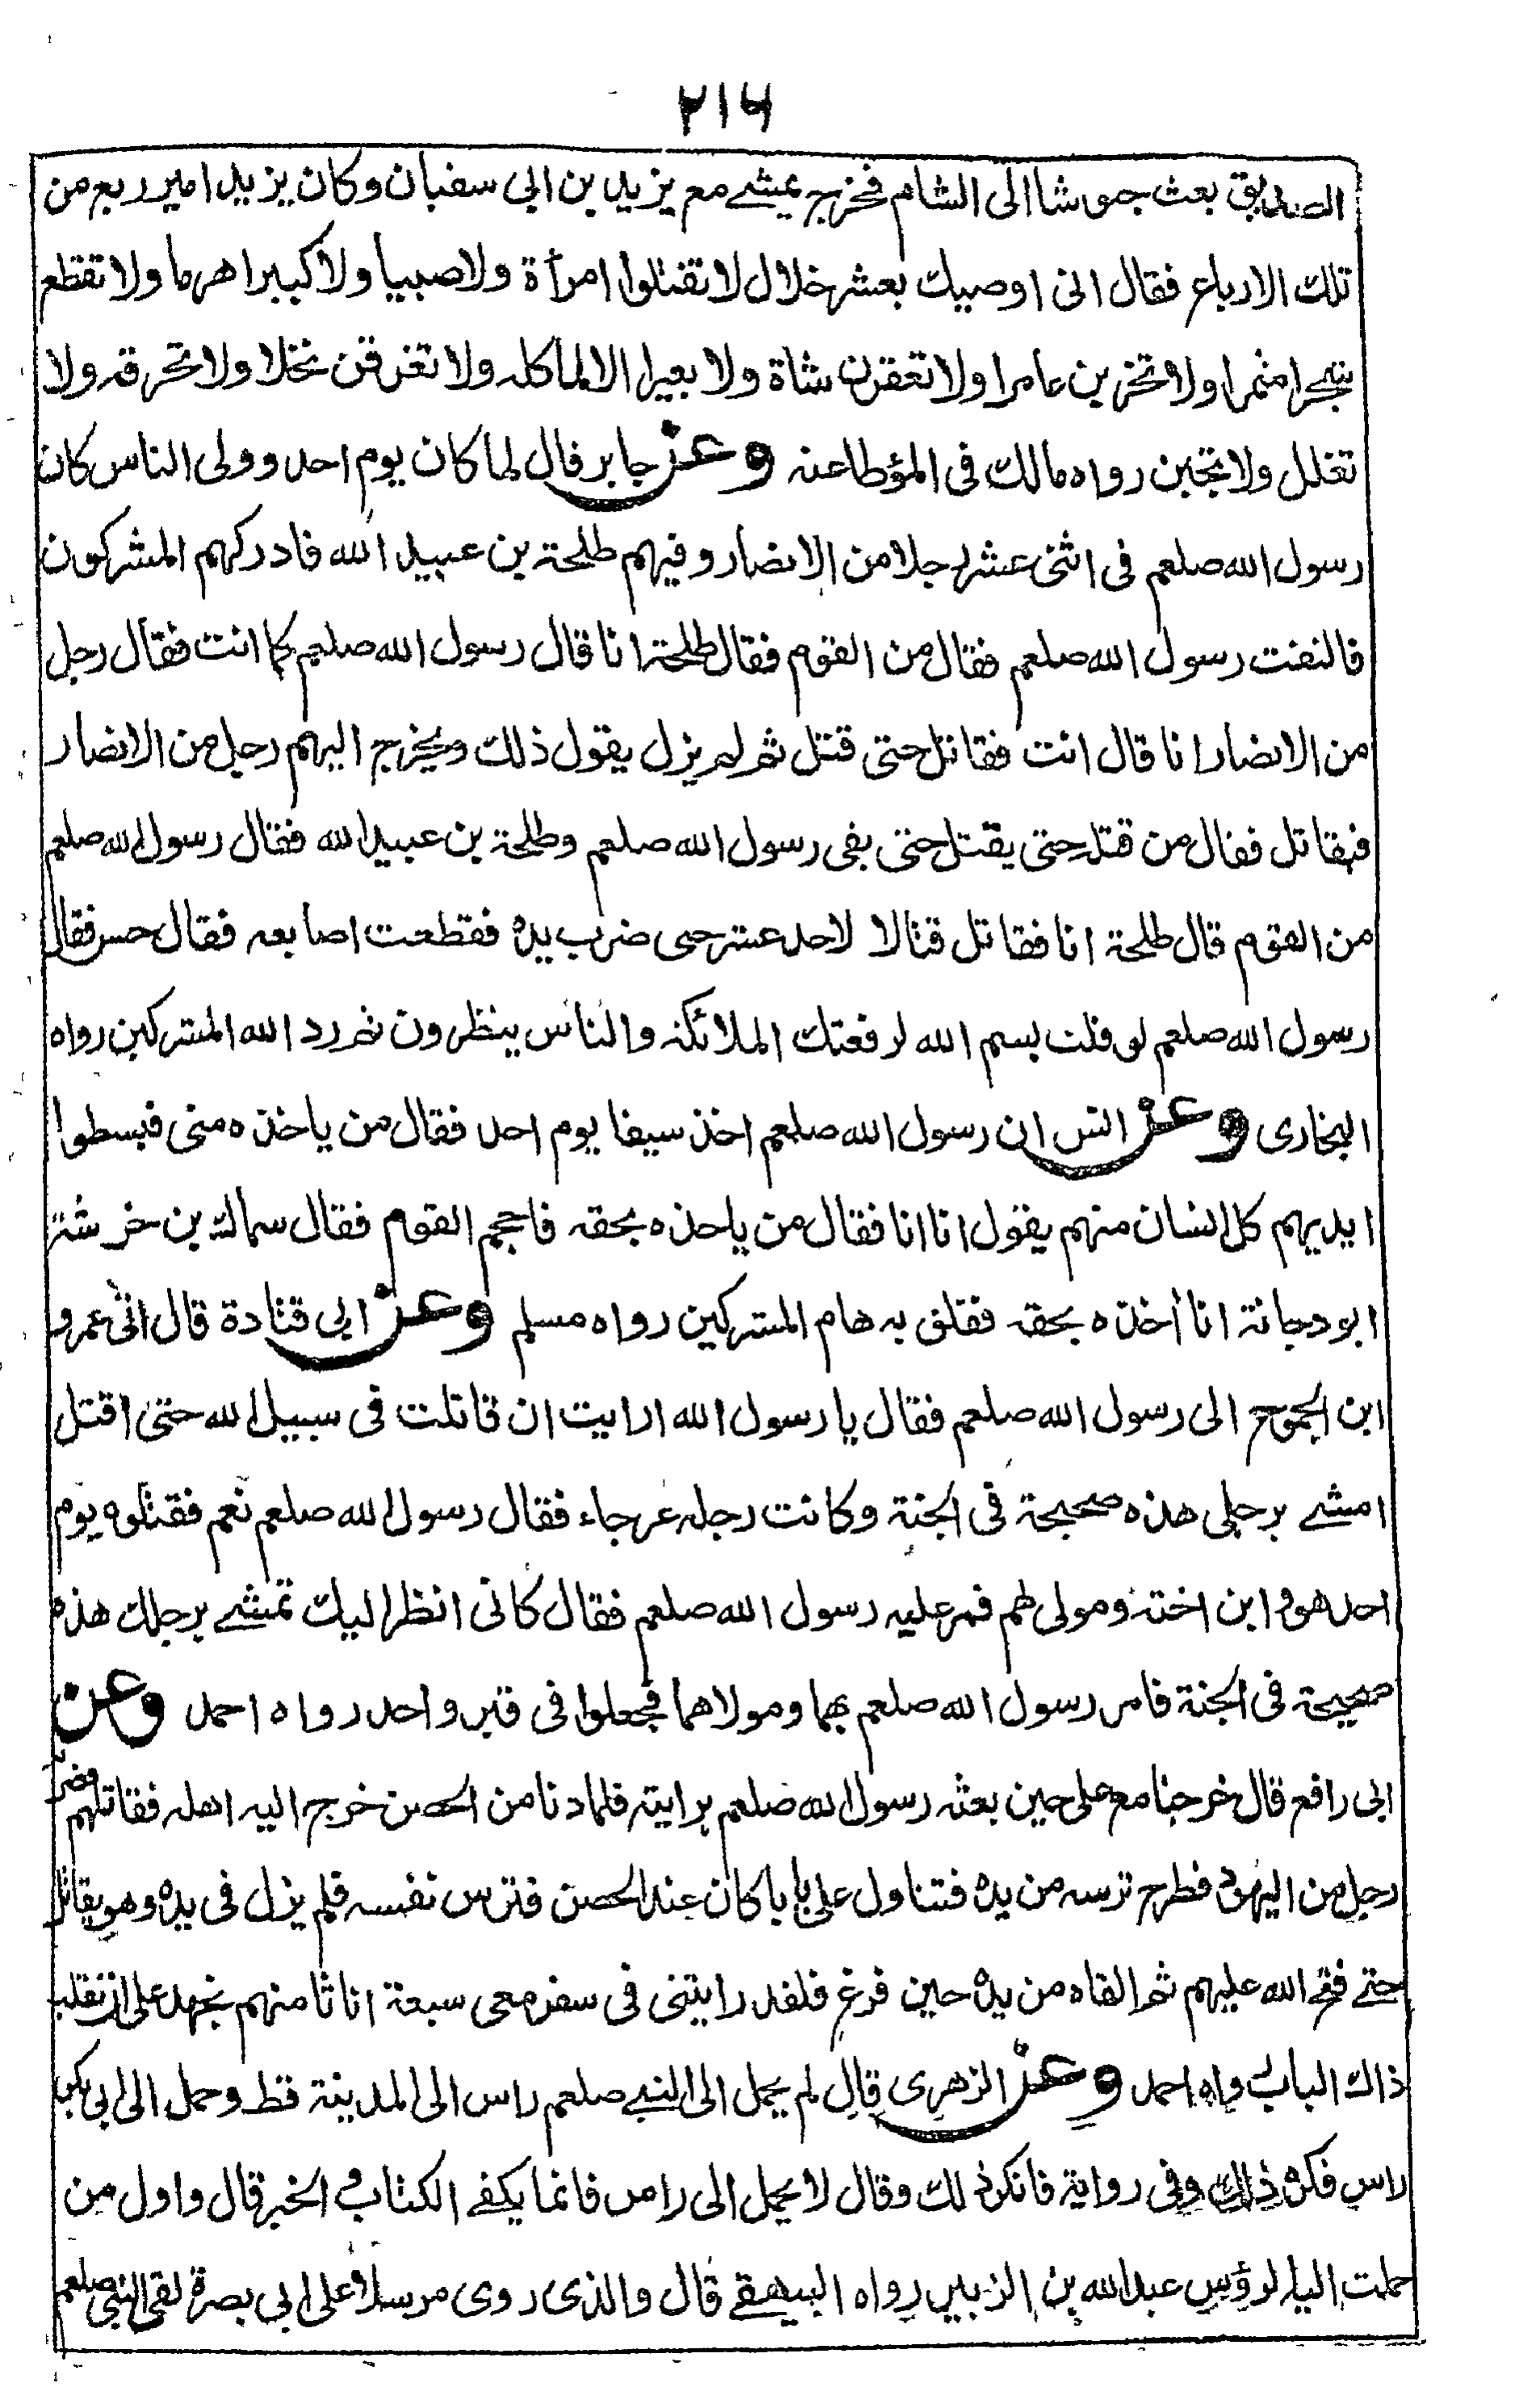 ٢١٦
الصديق بعث جيوشا الى الشام فخرج يمشے مع يزيد بن ابى سفيان وكان يزيد امير ربع من
تلك الارباع فقال انى اوصيك بعشر خلال لا تقتلوا امرأة ولا صبيا ولا كبيرا هرما ولا تقطع
شجرا مثمرا ولا تخربن عامرا ولا تعقرن شاة ولا بعيرا الا لماكله ولا تغرقن نخلا ولا تحرقه ولا
تغلل ولا تجبن رواه مالك فى المؤطا عنه وعن جابر قال لما كان يوم احد وولى الناس كان
رسول الله صلعم فى اثنى عشر رجلا من الانصار وفيهم طلحة بن عبيد الله فادركهم المشركون
فالتفت رسول الله صلعم فقال من القوم فقال طلحة انا قال رسول الله صلعم كما انت فقال رجل
من الانصار انا قال انت فقاتل حتى قتل ثم لم يزل يقول ذلك ويخرج اليهم رجل من الانصار
فيقاتل فقال من قتل حتى يقتل حتى بقى رسول الله صلعم وطلحة بن عبيد الله فقال رسول الله صلعم
من القوم قال طلحة انا فقاتل قتالا لاحد عشر حتى ضرب يده فقطعت اصابعه فقال حس فقال
رسول الله صلعم لو قلت بسم الله لرفعتك الملائكة والناس ينظرون ثم رد الله المشركين رواه
البخارى وعن انس ان رسول الله صلعم اخذ سيفا يوم احد فقال من ياخذه منى فبسطوا
ايديهم كل انسان منهم يقول انا انا فقال من ياخذه بحقه فاحجم القوم فقال سماك بن خرشة
ابو دجانة انا أخذه بحقه ففلق به هام المشركين رواه مسلم وعن ابى قتادة قال اتى عمرو
ابن الجموح الى رسول الله صلعم فقال يا رسول الله ارايت ان قاتلت فى سبيل الله حتى اقتل
امشے برجلى هذه صحيحة فى الجنة وكانت رجله عرجاء فقال رسول الله صلعم نعم فقتلوه يوم
احد هو وابن اخته ومولى لهم فمر عليه رسول الله صلعم فقال كانى انظر اليك تمشے برجلك هذه
صحيحة فى الجنة فامر رسول الله صلعم بهما ومولاهما فجعلوا فى قبر واحد رواه احمد وعن
ابى رافع قال خرجنا مع على حين بعثه رسول الله صلعم برايته فلما دنا من الحصن خرج اليه اهله فقاتلهم فضربه
رجل من اليهود فطرح ترسه من يده فتناول على بابا كان عند الحصن فترس نفسه فلم يزل فى يده وهو يقاتل
حتے فتح الله عليهم ثم القاه من يده حين فرغ فلقد رايتنى فى سفر معى سبعة انا ثامنهم نجهد على ان نقلب
ذاك الباب رواه احمد وعن الزهرى قال لم يحمل الى النبے صلعم راس الى المدينة قط وحمل الى ابى بكر
راس فكره ذلك وفى رواية فانكر ذلك وقال لا يحمل الى راس فانما يكفے الكتاب والخبر قال واول من
حملت اليه الرؤس عبد الله بن الزبير رواه البيهقے قال والذى روى مرسلا على ابى بصرة لقى النبى صلعم